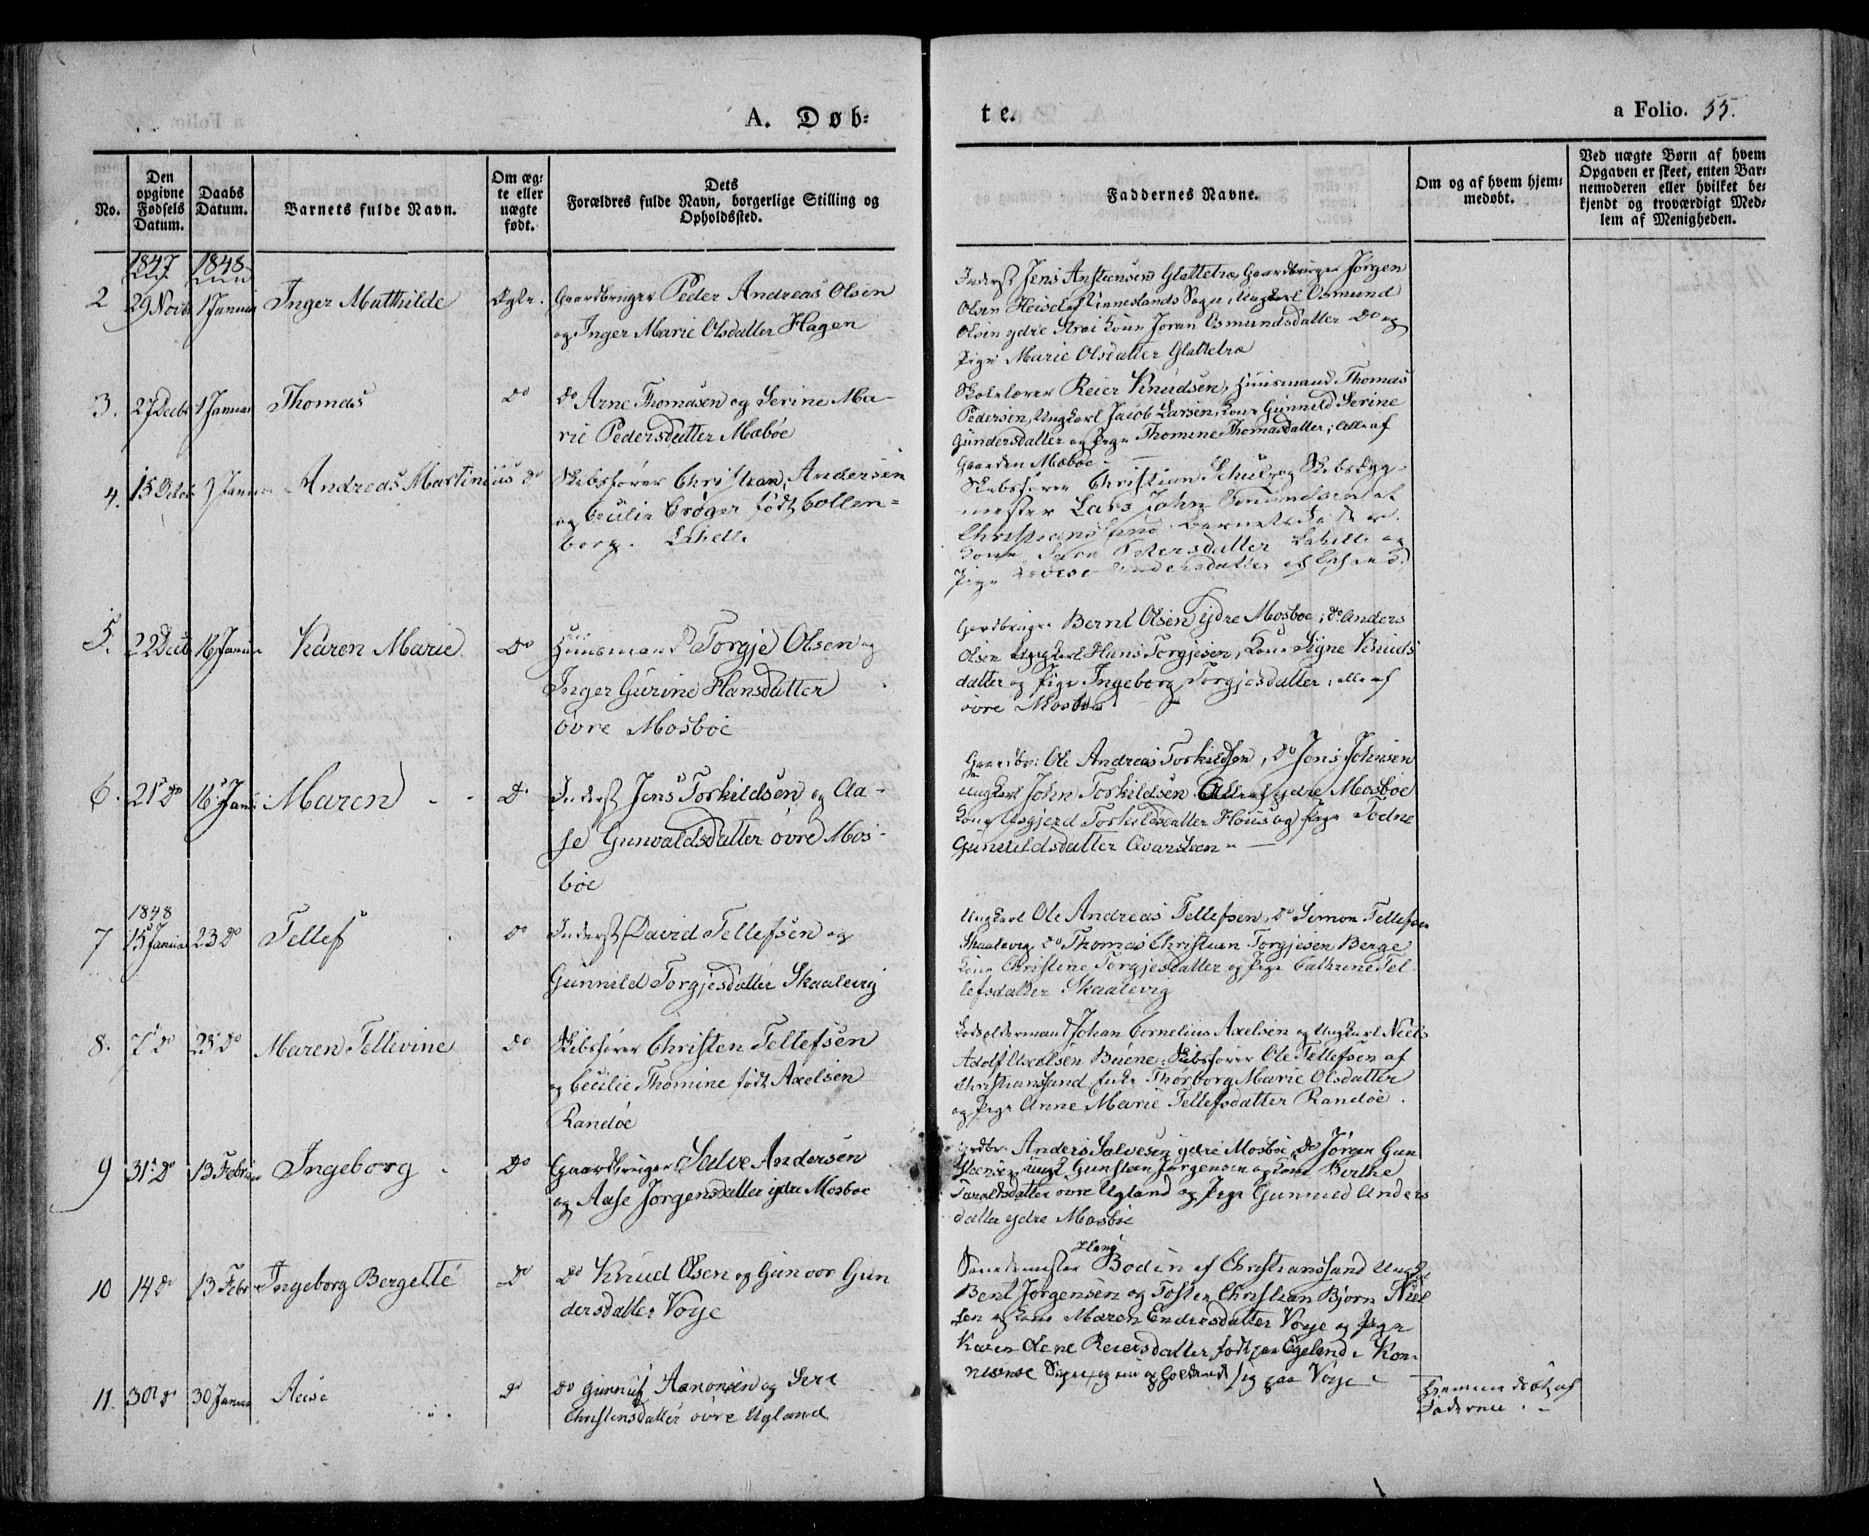 A. Døb-
te.
a Folio. 55.
No.
Den opgivne Fødsels Datum.
Daabs Datum.
Barnets fulde Navn.
Om æg-
te eller
uægte
født.
Dets
Forældres fulde Navn, borgerlige Stilling og
Opholdssted.
Faddernes Navne.
Om og af hvem hjem-
medøbt.
Ved uægte Børn af hvem
Opgaven er skeet, enten Bar-
nemoderen eller hvilket be-
kjendt og troværdigt Med-
lem af Menigheden.
1847 1848
2 29 Novb 1 Januar Inger Mathilde Ægte. Gaardbruger Peder Andreas Olsen
og Inger Marie Olsdatter Hagen
Inderst Jens Anstensen Glattetræ, Gaardbruger Jørgen
Olsen Ungkarl Osmund
Olsen ydre Kone Joran Osmundsdatter Do og
Pige Marie Olsdatter Glattetræ
3. 27 Decbr 1 Januar Thomas Do Do Arne Thomasen og Serine Ma-
rie Pedersdatter Mæbøe
Skolelærer Reier Knudsen, Huusmand Thomas
Pedersen, Ungkarl Jacob Larsen, Kone Gunnild Serine
Gundersdatter og Pige Thomine Thomasdatter, alle af
Gaarden Mæbøe
4. 15 Octob 9 Januar Andreas Martinius Do Skibsfører Christian Andersen
og Cecilie Crøger født Collen-
borg.
Skibsfører Christian Schulz og Skibsbygg-
mester Lars John
Christiansand
Kone Pedersdatter og
Pige
5. 22 Decb 16 Janua Karen Marie Do Huusmand Torgje Olsen og
Inger Gurine Hansdatter
øvre Mosbøe
Gaardbruger Bernt Olsen ydre Mosboe, Do Anders
Olsen Ungkarl Hans Torgjesen, Kone Signe Knuds
datter og Pige Ingeborg Torgjesdatter, alle af
øvre Mosbøe
6. 21 Do 16 Janu Maren Do Inderst Jens Torkildsen og Aa-
se Gunvaldsdatter øvre Mos-
bøe
Gaardbr: Ole Andreas Torkildsen, Do Jens Johnsen
Ungkarl John Torkildsen Alle af ydre Mosbøe
Kone Asgjerd Torkildsdatter og Pige Todne
Gunvildsdatter Qvarsteen
1848
7 15 Januar 23 Do Tellef Do Inderst David Tellefsen og
Gunnild Torgjesdatter Skaalevig
Ungkarl Ole Andreas Tellefsen, Do Simon Tellefsen
Skaalevig, Do Thomas Christian Torgjesen Berge
Kone Christine Torgjesdatter og Pige Cathrine Tel
lefsdatter Skaalevig
8. 7 Do 23 Do Maren Tellevine Do Skibsfører Christen Tellefsen
og Cecilie Thomine født Axelsen
Randøe
Lodsoldermand Johan Cornelius Axelsen og Ungkarl Niels
Adolf Axelsen Buene, Skibsfører Ole Tellefsen af
Christianssand Thorborg Marie Olsdatter
og Pige Anne Marie Tellefsdatter Randøe.
9 31 Do 13 Febru Ingeborg Do Gaardbruger Salve Andersen
og Aase Jørgensdatter ydre Mosboe
Gardbr. Anders Salvesen ydre Mosboe, Do Jørgen Gun
steensen, Ungk. Gunsteen Jørgensen og Kone Berthe
Taraldsdatter øvre Ugland og Pige Gunnild Anders
datter ydre Mosbøe
10 14 Do 13 Febr Ingeborg Bergette Do Do Knud Olsen og Gunvor Gun
dersdatter Voije
Bodin af Christianssand Ungk
Bent Jørgensen og Tosten Christian Bjørn Niel
sen og Kone Maren Endresdatter Voije og Pige
Karen Lene Reiersdatter født paa Egeland i
Sogn, og opholdende sig paa Voije
11. 30 Do 30 Janua Aase Do Do Gunnuf Aanonsen og Seri
Christensdatter øvre Ugland
Hjemmedøbt af
Faderen